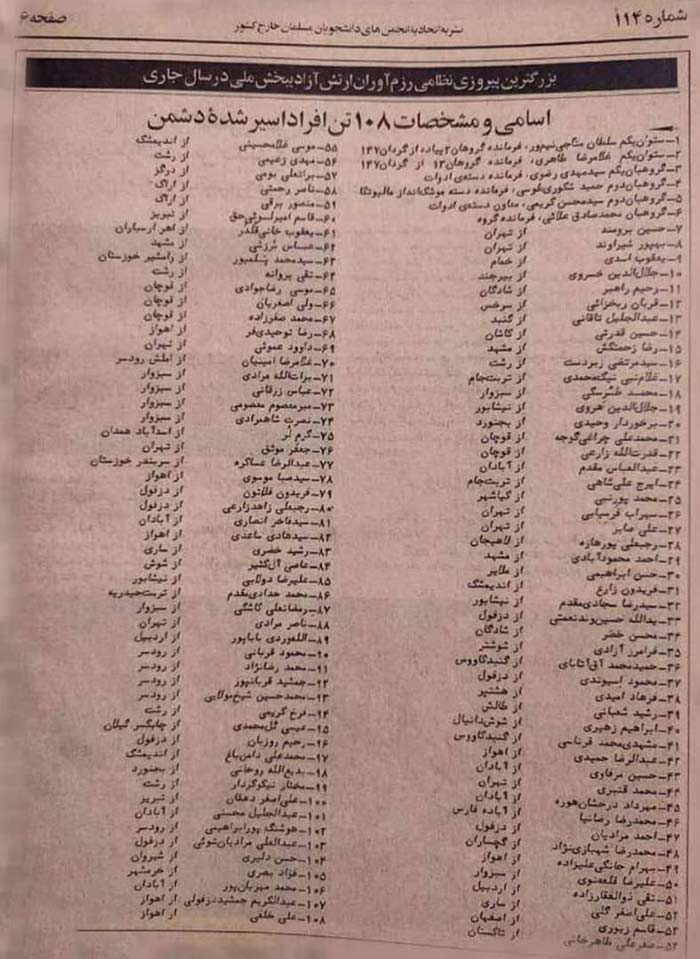 شماره ۱۱۴
نشریه اتحادیه انجمن های دانشجویان مسلمان خارج کشور
صفحه ۶
بزرگترین پیروزی نظامی رزم‌آوران ارتش آزادیبخش ملی در سال جاری
اسامی و مشخصات ۱۰۸ تن افراد اسیر شدهٔ دشمن
۱- ستوان‌یکم سلطان مناجی‌نیم‌پور، فرمانده گروهان ۲ پیاده از گردان ۱۴۷
۲- ستوان‌یکم غلامرضا طاهری، فرمانده گروهان ۱۳ از گردان ۱۴۷
۳- گروهبان‌یکم سیدمهدی رضوی، فرمانده دسته‌ی ادوات
۴- گروهبان‌دوم حمید شکوری‌طوسی، فرمانده دسته موشک‌انداز مالیوتکا
۵- گروهبان‌دوم سیدمحسن کریمی، معاون دسته‌ی ادوات
۶- گروهبان محمدصادق علائی، فرمانده گروه
۷- حسین برومند از تهران
۸- بهپور شیراوند از تهران
۹- یعقوب اسدی از خمام
۱۰- جلال‌الدین خسروی از بیرجند
۱۱- رحیم راهبر از شادگان
۱۲- قربان ریخزائی از سرخس
۱۳- عبدالجلیل تاقانی از گنبد
۱۴- حسین قدرتی از کاشان
۱۵- رضا زحمتکش از مشهد
۱۶- سیدمرتضی زبردست از رشت
۱۷- غلام‌نبی نیک‌محمدی از تربت‌جام
۱۸- محمد طبرسکی از سبزوار
۱۹- جلال‌الدین هروی از نیشابور
۲۰- برخوردار وحیدی از بجنورد
۲۱- محمدعلی چراغی‌کوچه از قوچان
۲۲- قدرت‌الله زارعی از قوچان
۲۳- عبدالعباس مقدم از آبادان
۲۴- ایرج علی‌شاهی از تربت‌جام
۲۵- محمد پورنبی از کیاشهر
۲۶- سهراب فرسیابی از تهران
۲۷- علی صابر از تهران
۲۸- رجبعلی پورهازه از لاهیجان
۲۹- احمد محمودآبادی از مشهد
۳۰- حسن ابراهیمی از ملایر
۳۱- فریدون زارع از اندیمشک
۳۲- سیدرضا سجادی‌مقدم از نیشابور
۳۳- یدالله حسین‌وند‌نعمتی از دزفول
۳۴- محسن خضر از شادگان
۳۵- فرامرز آزادی از شوشتر
۳۶- حمیدمحمد آق‌آتابای از گنبدکاووس
۳۷- محمود اسیوندی از دزفول
۳۸- فرهاد امیدی از هشتپر
۳۹- رشید شعبانی از طالش
۴۰- ابراهیم زهیری از شوش‌دانیال
۴۱- مشهدی‌محمد قرناسی از گنبدکاووس
۴۲- عبدالرضا حمیدی از اهواز
۴۳- حسین مرفاوی از آبادان
۴۴- محمد قنبری از تهران
۴۵- مهرداد درخشان‌هوره از آبادان
۴۶- محمدرضا رضانیا از آباده فارس
۴۷- احمد مرادیان از دزفول
۴۸- محمدرضا شهبازی‌نژاد از گچساران
۴۹- بهرام جانگی‌علیزاده از اهواز
۵۰- علیرضا قلعه‌نوی از سبزوار
۵۱- تقی ذوالفقارزاده از اردبیل
۵۲- علی‌اصغر گلی از ساری
۵۳- قاسم زیوری از اصفهان
۵۴- صفرعلی طاهرخانی از تاکستان
۵۵- موسی غلامحسینی از اندیمشک
۵۶- مهدی زعیمی از رشت
۵۷- براتعلی بومی از درگز
۵۸- ناصر رحمتی از اراک
۵۹- منصور برقی از اراک
۶۰- قاسم امیرلوئی‌حق از تبریز
۶۱- یعقوب خانی‌قلدر از اهر ارسباران
۶۲- عباس برزشی از مشهد
۶۳- سیدمحمد پتلمپور از رامشیر خوزستان
۶۴- تقی پروانه از رشت
۶۵- موسی رضاجوادی از قوچان
۶۶- ولی اصغریان از قوچان
۶۷- محمد صفرزاده از قوچان
۶۸- رضا توحیدی‌فر از اهواز
۶۹- داوود عموئی از تهران
۷۰- غلامرضا امینیان از املش رودسر
۷۱- برات‌الله مرادی از سبزوار
۷۲- عباس زرقانی از سبزوار
۷۳- میرمعصوم معصومی از سبزوار
۷۴- نصرت شاهمرادی از سبزوار
۷۵- کرم لُر از اسدآباد همدان
۷۶- جعفر موثق از تهران
۷۷- عبدالرضا عساکره از سربندر خوزستان
۷۸- سیدصبا موسوی از اهواز
۷۹- فریدون فلاتون از دزفول
۸۰- رجبعلی زاهدزارعی از دزفول
۸۱- سیدفاخر انصاری از آبادان
۸۲- سیدهادی ساعدی از اهواز
۸۳- رشید خضری از ساری
۸۴- عاصی آل‌کثیر از شوش
۸۵- علیرضا دولابی از نیشابور
۸۶- محمد حدادی‌مقدم از تربت‌حیدریه
۸۷- رمضانعلی کاشکی از سبزوار
۸۸- ناصر مرادی از تهران
۸۹- الله‌وردی باباپور از اردبیل
۹۰- محمود قربانی از رودسر
۹۱- محمد رضانژاد از رودسر
۹۲- جمشید قربانپور از رودسر
۹۳- محمدحسین شیخ‌مولایی از رودسر
۹۴- فرخ کریمی از رشت
۹۵- عیسی گل‌محمدی از چابکسر گیلان
۹۶- رحیم روزبان از دزفول
۹۷- محمدعلی دامن‌باغ از اندیمشک
۹۸- بدیع‌الله روحانی از بجنورد
۹۹- مختار نیکوکردار از رشت
۱۰۰- علی‌اصغر دهقان از تبریز
۱۰۱- عبدالجلیل محسنی از آبادان
۱۰۲- هوشنگ پورابراهیمی از رودسر
۱۰۳- عبدالعلی مرادیان‌شوئی از دزفول
۱۰۴- حسن دلیری از شیروان
۱۰۵- فؤاد بصری از خرمشهر
۱۰۶- محمد مهربان‌پور از آبادان
۱۰۷- عبدالکریم جمشیددزفولی از اهواز
۱۰۸- علی خلفی از اهواز